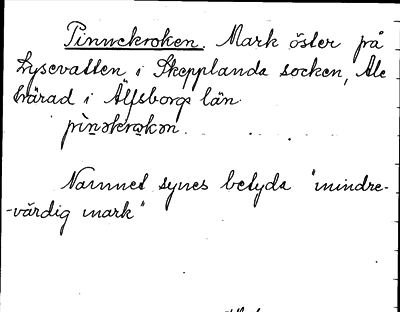 Pinnekroken. Mark öster på
Lysevatten i Skepplanda socken, Ale
härad i Älfsborgs län
pìnəkrokən.
Namnet synes betyda "mindre-
-värdig mark"